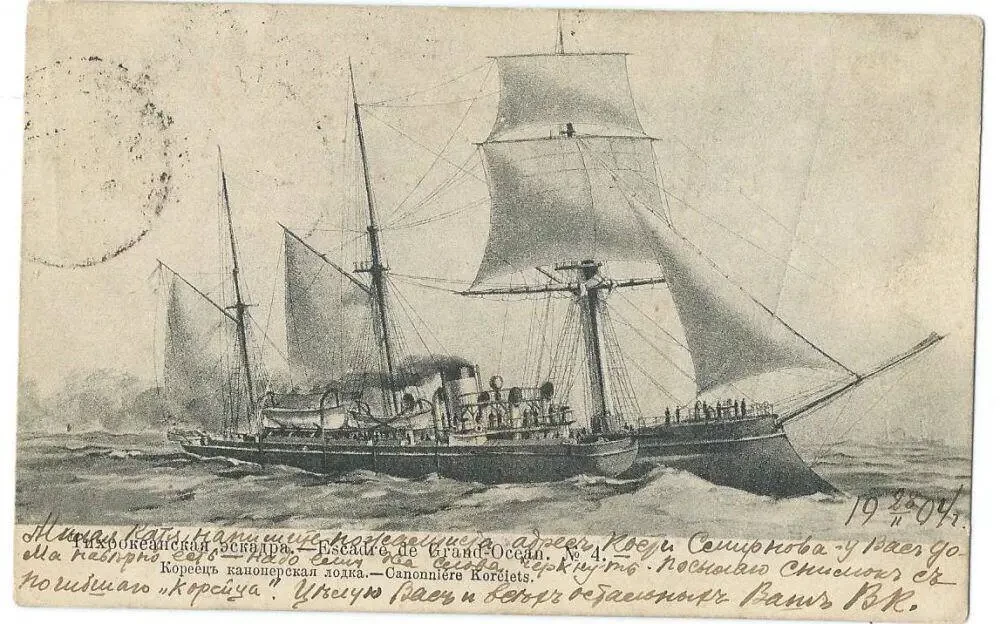 19 II 04 г.
Милая Катя пожалуйста адресъ Кости Смирнова - у Васъ до-
Тихоокеанская эскадра.—Escadre de Grand-Océan. № 4.
ма навѣрно есть - надо ему два слова черкнуть. Посылаю снимокъ съ
Кореецъ канонерская лодка.—Canonnière Koréiets.
погибшаго „Корейца“. Цѣлую Васъ и всѣхъ остальныхъ Вашъ ВК.